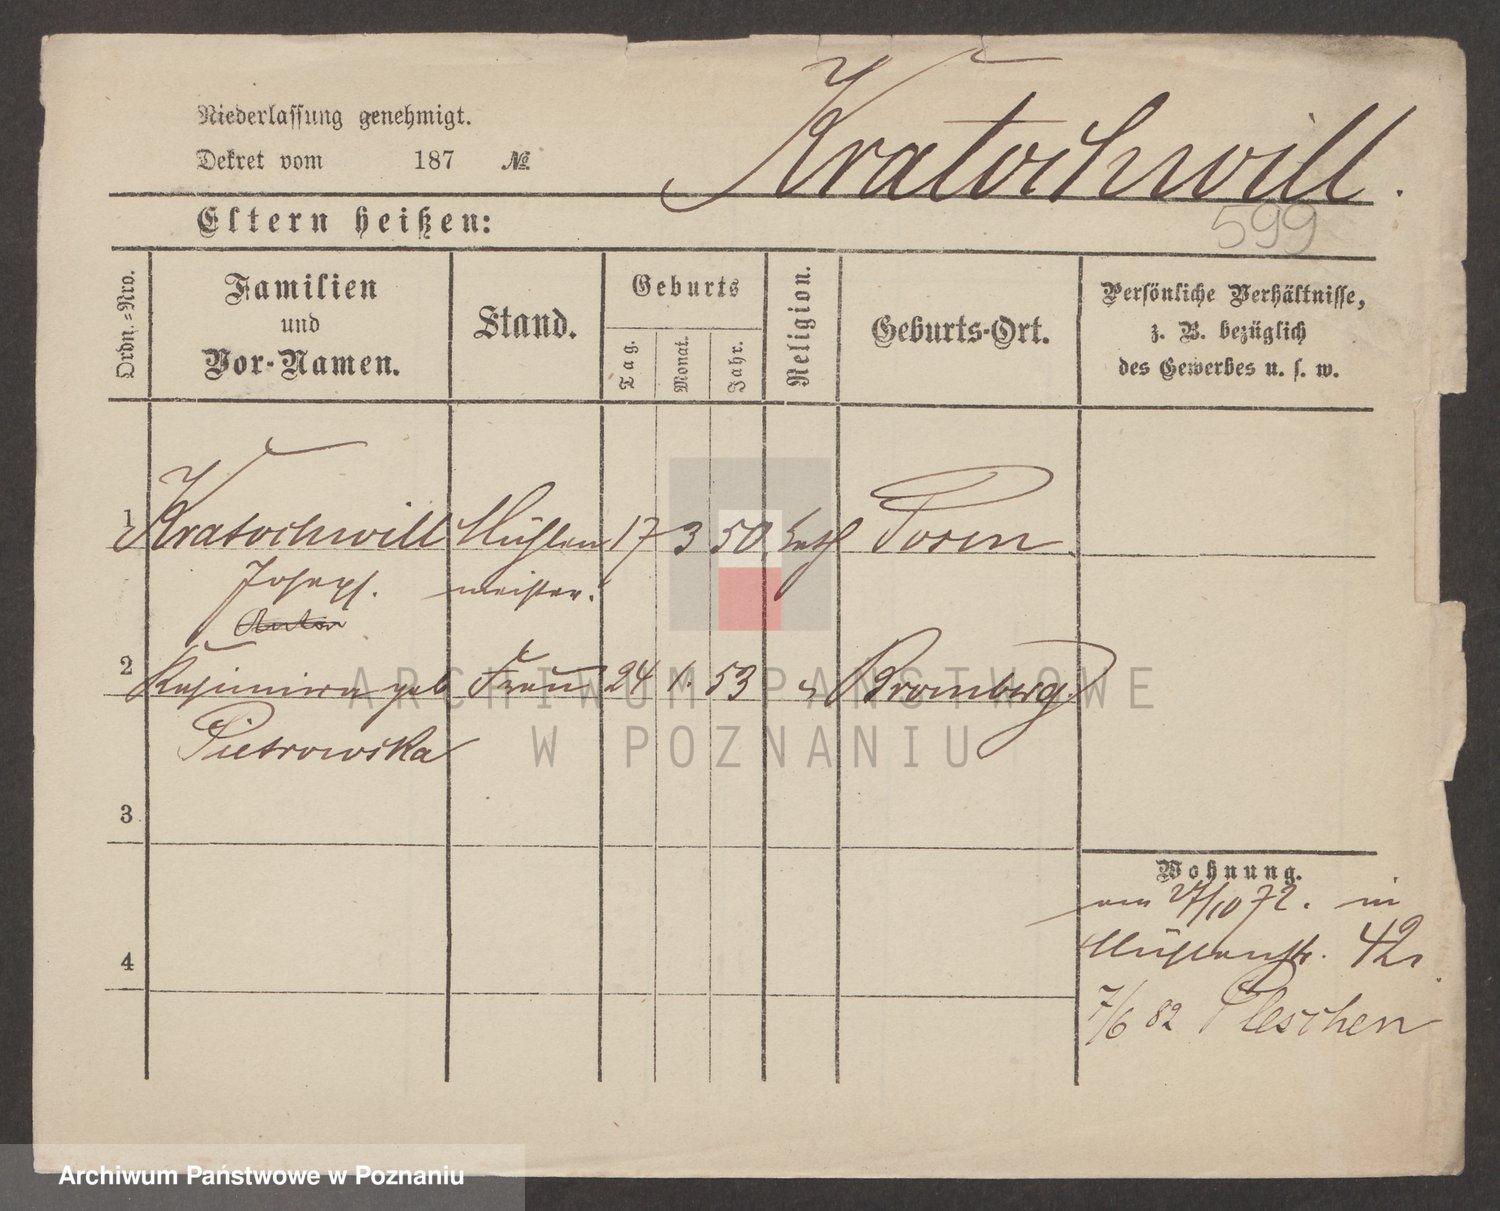 Kratochwill.
Niederlassung genehmigt.
Dekret vom 187 №
599
Eltern heißen:
Ordn.-Nro.
Familien
und
Vor-Namen.
Stand.
Geburts
Tag.
Monat.
Jahr.
Religion.
Geburts-Ort.
Persönliche Verhältnisse,
z. B. bezüglich
des Gewerbes u. s. w.
1 Kratochwill Mühlen 17 3 50. kath Posen
Joseph. meister.
Anton
2 Kasimira geb Frau 24 1. 53 " Bromberg
Pietrowska
3
4
Wohnung.
am 27/10 72. in
Mühlenstr. 42.
7/6 82 Pleschen
ARCHIWUM PAŃSTWOWE
W POZNANIU
Archiwum Państwowe w Poznaniu